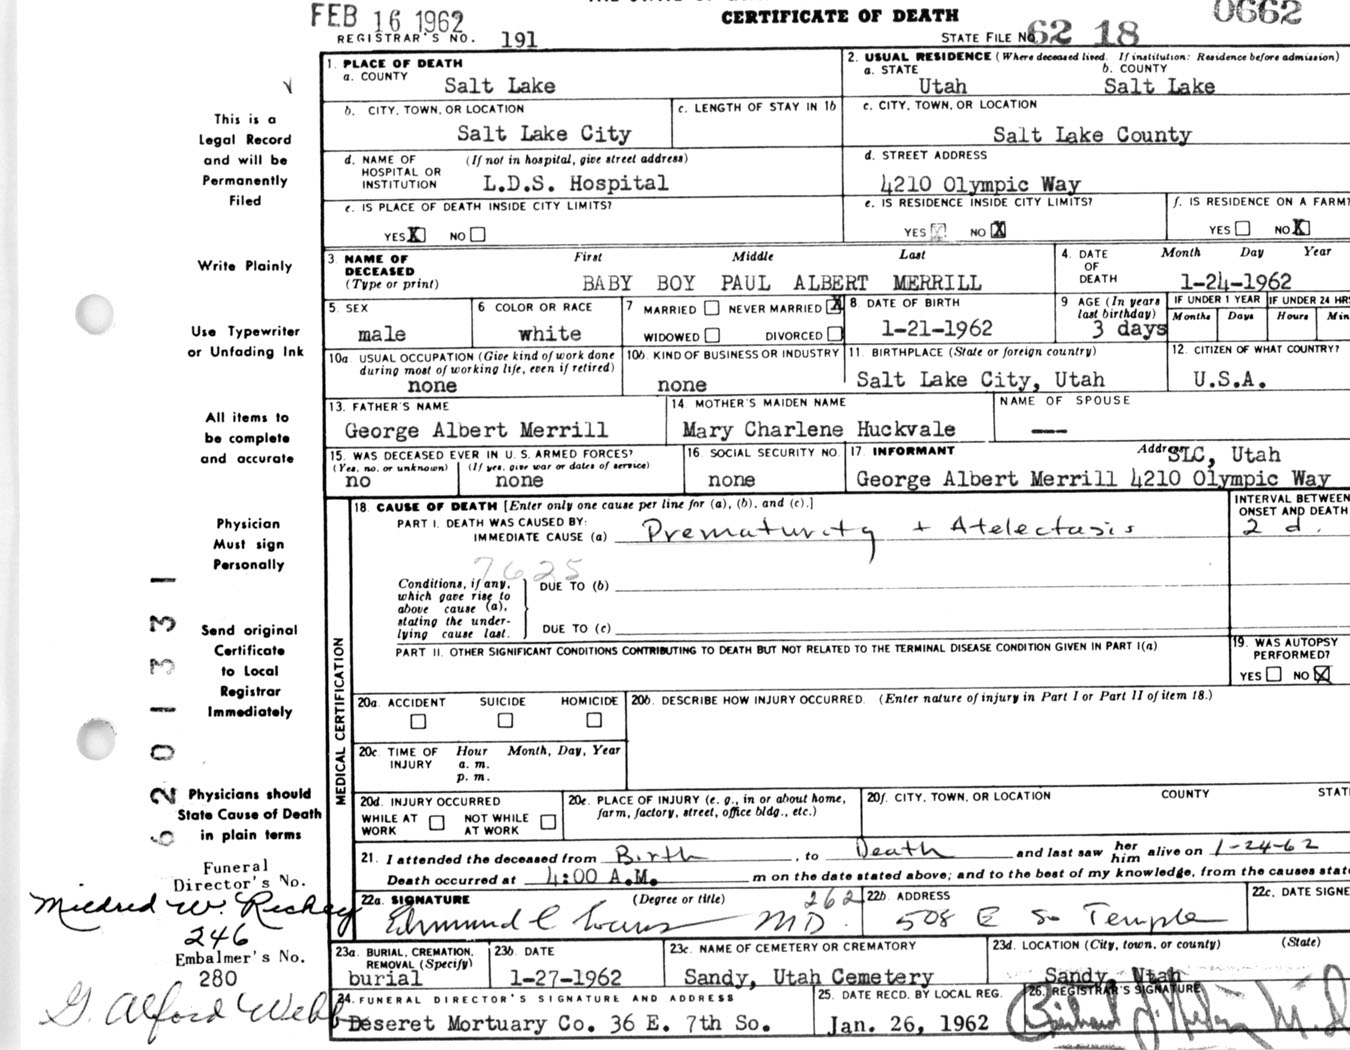 FEB 16 1962
CERTIFICATE OF DEATH
0662
REGISTRAR'S NO. 191
STATE FILE NO. 62 18
1. PLACE OF DEATH
a. COUNTY
Salt Lake
2. USUAL RESIDENCE (Where deceased lived. If institution: Residence before admission)
a. STATE b. COUNTY
Utah Salt Lake
b. CITY, TOWN, OR LOCATION
Salt Lake City
c. LENGTH OF STAY IN 1b
c. CITY, TOWN, OR LOCATION
Salt Lake County
d. NAME OF HOSPITAL OR INSTITUTION (If not in hospital, give street address)
L.D.S. Hospital
d. STREET ADDRESS
4210 Olympic Way
e. IS PLACE OF DEATH INSIDE CITY LIMITS?
YES X NO
e. IS RESIDENCE INSIDE CITY LIMITS?
YES NO X
f. IS RESIDENCE ON A FARM?
YES NO X
3. NAME OF DECEASED (Type or print)
First Middle Last
BABY BOY PAUL ALBERT MERRILL
4. DATE OF DEATH
Month Day Year
1-24-1962
5. SEX
male
6 COLOR OR RACE
white
7 MARRIED NEVER MARRIED X
WIDOWED DIVORCED
8 DATE OF BIRTH
1-21-1962
9 AGE (In years last birthday)
3 days
IF UNDER 1 YEAR
Months Days
IF UNDER 24 HRS
Hours Min
10a. USUAL OCCUPATION (Give kind of work done during most of working life, even if retired)
none
10b. KIND OF BUSINESS OR INDUSTRY
none
11. BIRTHPLACE (State or foreign country)
Salt Lake City, Utah
12. CITIZEN OF WHAT COUNTRY?
U.S.A.
13. FATHER'S NAME
George Albert Merrill
14. MOTHER'S MAIDEN NAME
Mary Charlene Huckvale
NAME OF SPOUSE
---
15. WAS DECEASED EVER IN U.S. ARMED FORCES?
(Yes, no, or unknown) (If yes, give war or dates of service)
no none
16. SOCIAL SECURITY NO.
none
17. INFORMANT Addr SLC, Utah
George Albert Merrill 4210 Olympic Way
18. CAUSE OF DEATH [Enter only one cause per line for (a), (b), and (c).]
PART I. DEATH WAS CAUSED BY:
IMMEDIATE CAUSE (a) Prematurity + Atelectasis
INTERVAL BETWEEN ONSET AND DEATH
2 d.
7625
Conditions, if any, which gave rise to above cause (a), stating the underlying cause last.
DUE TO (b)
DUE TO (c)
PART II. OTHER SIGNIFICANT CONDITIONS CONTRIBUTING TO DEATH BUT NOT RELATED TO THE TERMINAL DISEASE CONDITION GIVEN IN PART I(a)
19. WAS AUTOPSY PERFORMED?
YES NO X
MEDICAL CERTIFICATION
20a. ACCIDENT SUICIDE HOMICIDE
20b. DESCRIBE HOW INJURY OCCURRED. (Enter nature of injury in Part I or Part II of item 18.)
20c. TIME OF INJURY
Hour Month, Day, Year
a. m.
p. m.
20d. INJURY OCCURRED
WHILE AT WORK NOT WHILE AT WORK
20e. PLACE OF INJURY (e. g., in or about home, farm, factory, street, office bldg., etc.)
20f. CITY, TOWN, OR LOCATION COUNTY STAT
21. I attended the deceased from Birth, to Death and last saw her him alive on 1-24-62
Death occurred at 4:00 A.M. m on the date stated above; and to the best of my knowledge, from the causes state
22a. SIGNATURE (Degree or title) 262
Edmund C Evans MD.
22b. ADDRESS
508 E So Temple
22c. DATE SIGNE
23a. BURIAL, CREMATION, REMOVAL (Specify)
burial
23b. DATE
1-27-1962
23c. NAME OF CEMETERY OR CREMATORY
Sandy, Utah Cemetery
23d. LOCATION (City, town, or county) (State)
Sandy, Utah
24. FUNERAL DIRECTOR'S SIGNATURE AND ADDRESS
Deseret Mortuary Co. 36 E. 7th So.
25. DATE RECD. BY LOCAL REG.
Jan. 26, 1962
26. REGISTRAR'S SIGNATURE
M.D
This is a
Legal Record
and will be
Permanently
Filed
Write Plainly
Use Typewriter
or Unfading Ink
All items to
be complete
and accurate
Physician
Must sign
Personally
Send original
Certificate
to Local
Registrar
Immediately
Physicians should
State Cause of Death
in plain terms
Funeral
Director's No.
Mildred W. Richey
246
Embalmer's No.
280
G. Alford Webb